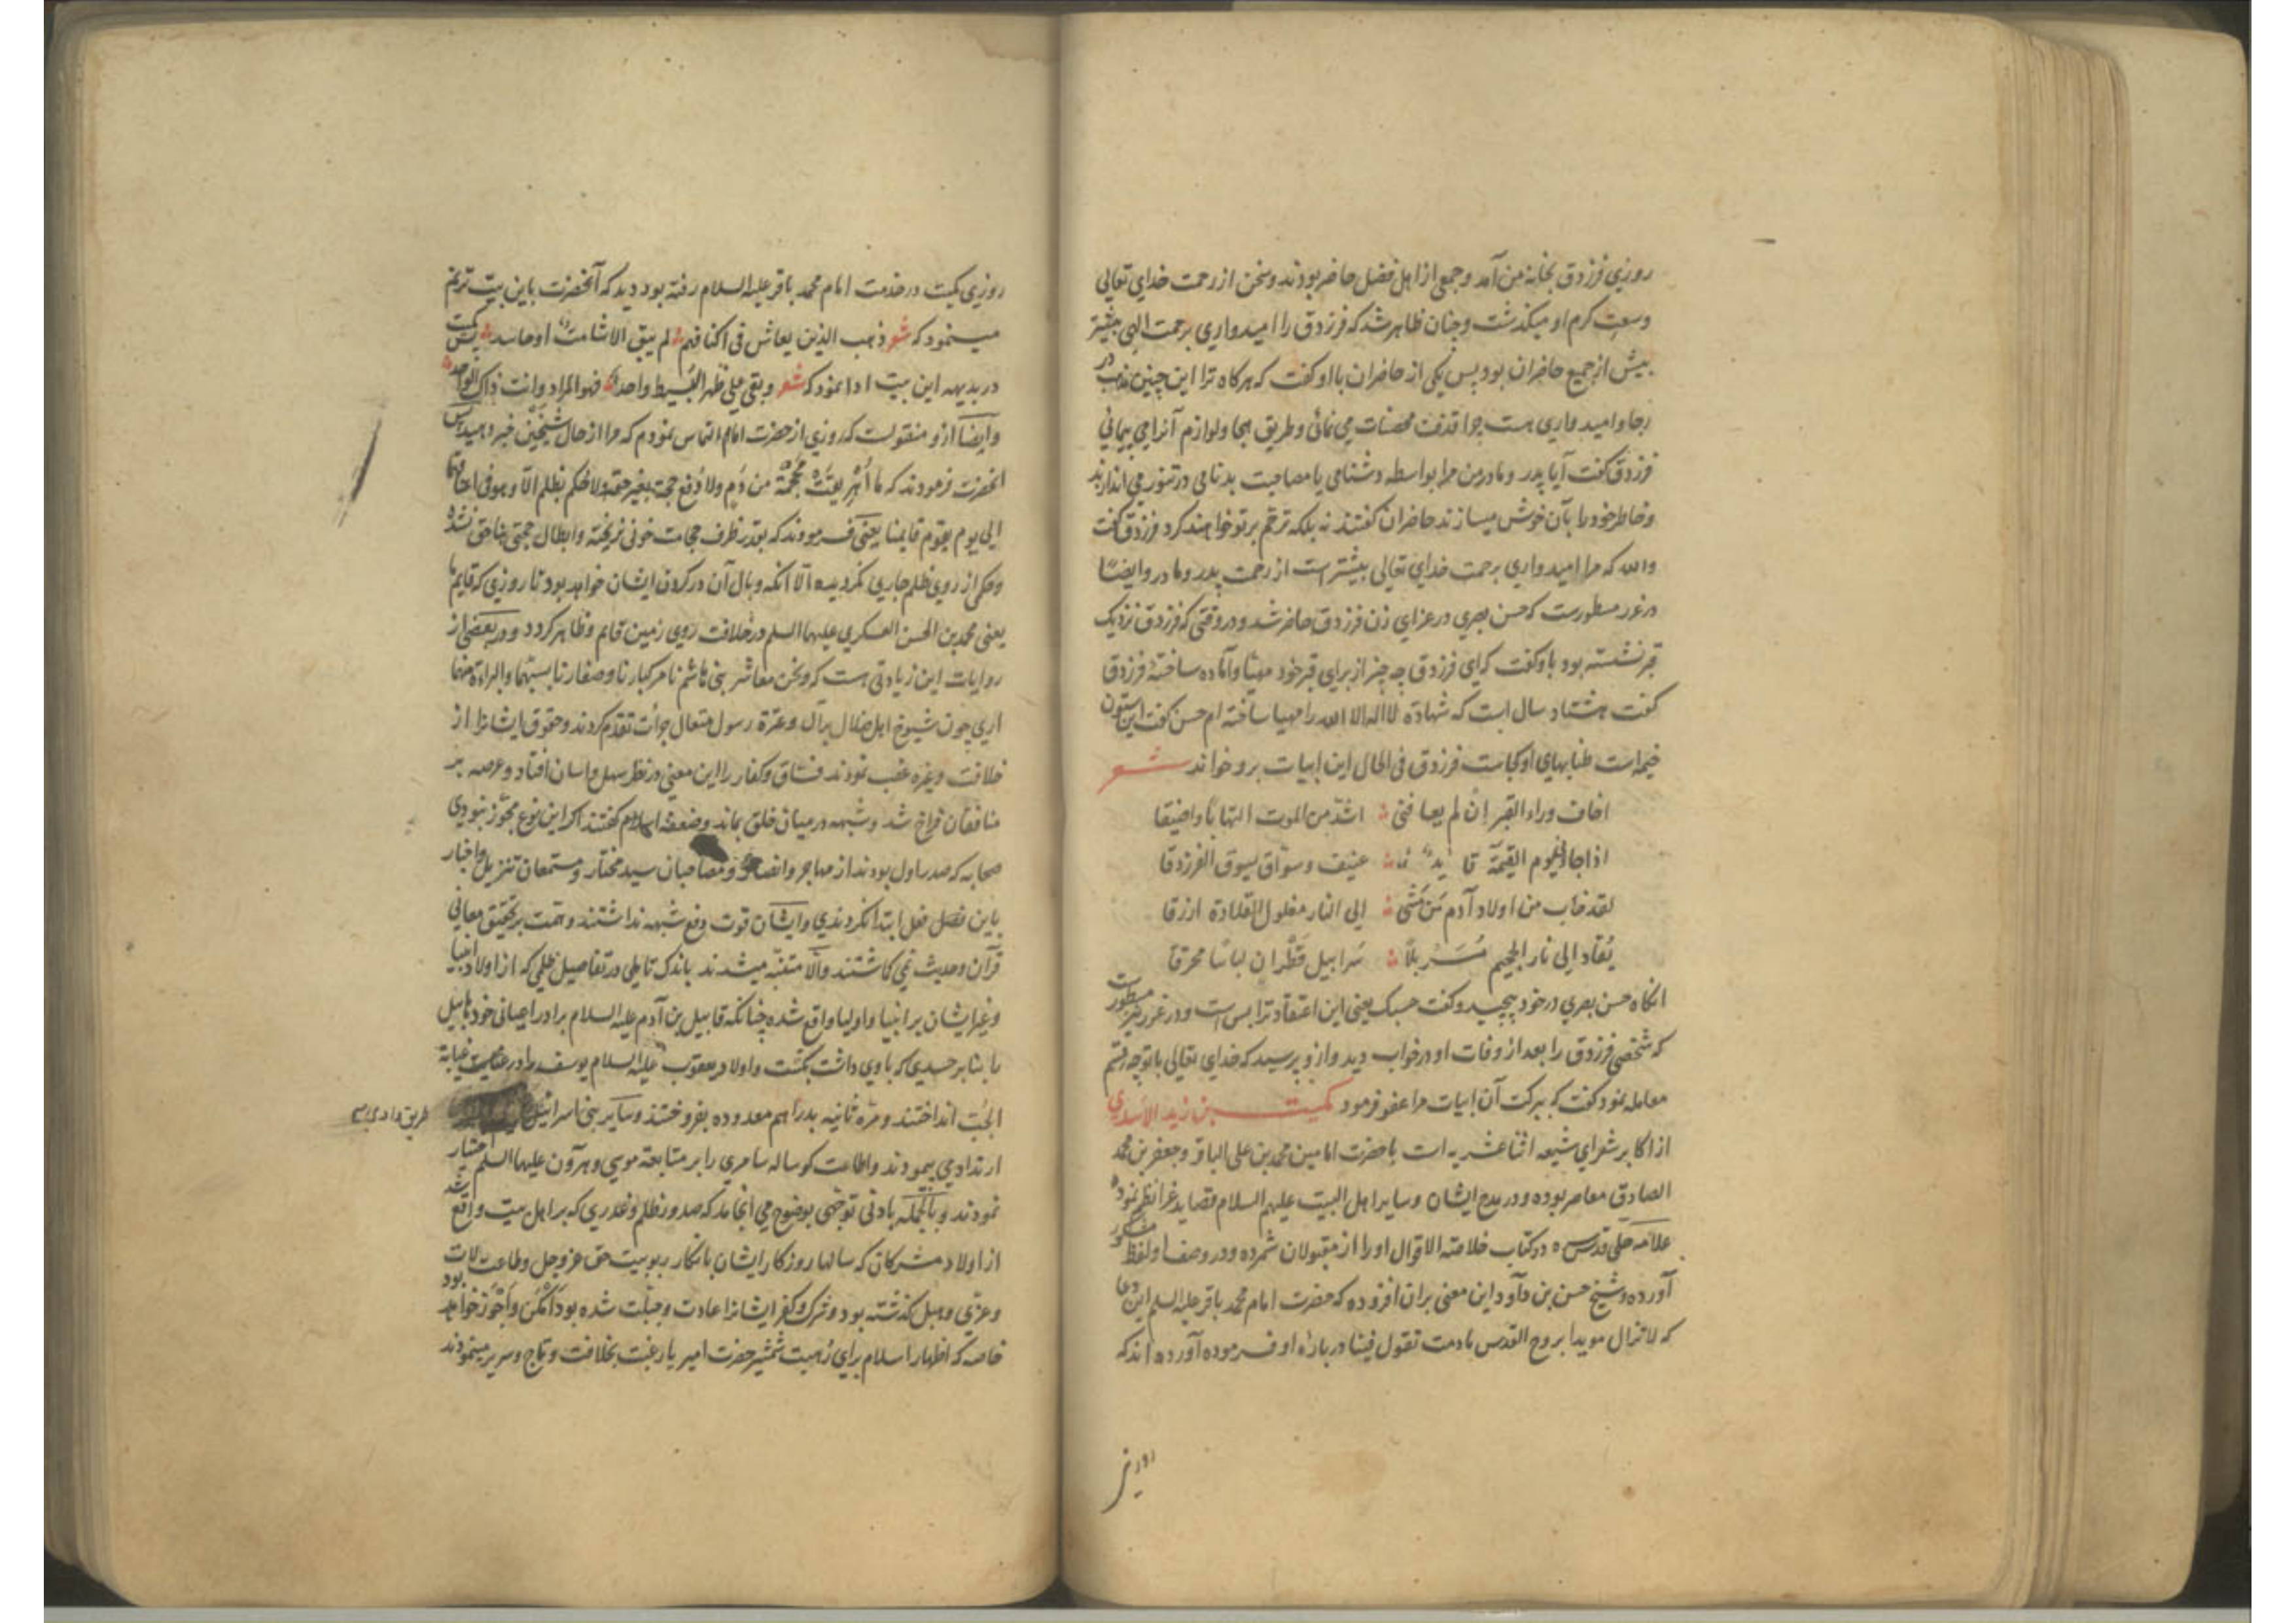 روزی فرزدق بخانه من آمد و جمعی از اهل فضل حاضر بودند و سخن از رحمت خدای تعالی
وسعت کرم او میکذشت و چنان ظاهر شد که فرزدق را امیدواری برحمت الهی بیشتر
بیش از جمیع حاضران بود پس یکی از حاضران بااو کفت که هرکاه ترا این چنین مذهب
رجا و امیدواری هست چرا قذف محصنات می نمائی و طریق هجا و لوازم آنرا می پیمائی
فرزدق کفت آیا پدر و مادر من مرا بواسطه دشنامی یا مصاحبت بدنامی در تنور می اندازند
و خاطر خود را بآن خوش میسازند حاضران کفتند نه بلکه ترحم بر تو خواهند کرد فرزدق کفت
والله که مرا امیدواری برحمت خدای تعالی بیشتر است از رحمت پدر و مادر و ایضا
در غرر مسطورست که حسن بصری در عزای زن فرزدق حاضر شد و در وقتی که فرزدق نزدیک
قبر نشسته بود باو کفت که ای فرزدق چه چیز از برای قبر خود مهیا و آماده ساختهٔ فرزدق
کفت هشتاد سال است که شهادة لا اله الا الله را مهیا ساخته ام حسن کفت این ستون
خیمه است طنابهای او کجاست فرزدق فی الحال این ابیات برو خواند شعر
اخاف وراء القبر ان لم یعافنی اشد من الموت التهابا و اضیقا
اذا جاء یوم القیمة قاید عنیف و سواق یسوق الفرزدقا
لقد خاب من اولاد آدم من مشی الی النار مغلول القلادة ازرقا
یقاد الی نار الجحیم مسربلا سرابیل قطران لباسا محرقا
انکاه حسن بصری در خود پیچید و کفت حسبک یعنی این اعتقاد ترا بس است و در غرر نیز مسطورست
که شخصی فرزدق را بعد از وفات او در خواب دید و ازو پرسید که خدای تعالی باتو چه قسم
معامله نمود کفت که ببرکت آن ابیات مرا عفو فرمود کمیت بن زید الاسدی
از اکابر شعرای شیعه اثنا عشریه است با حضرت امامین محمد بن علی الباقر و جعفر بن محمد
الصادق معاصر بوده و در مدح ایشان و سایر اهل البیت علیهم السلام قصاید غرا نظم نموده
علامه حلی قدس سره در کتاب خلاصة الاقوال او را از مقبولان شمرده و در وصف او لفظ مشکور
آورده و شیخ حسن بن داود این معنی بران افزوده که حضرت امام محمد باقر علیه السلم این دعا
که لا تزال مویدا بروح القدس مادمت تقول فینا در بارهٔ او فرموده آورده اند که
روزی
روزی کمیت در خدمت امام محمد باقر علیه السلام رفته بود دید که آنحضرت باین بیت ترنم
مینمود که شعر ذهب الذین یعاش فی اکنافهم لم یبق الا شامت او حاسد پس کمیت
در بدیهه این بیت ادا نمود که شعر و بقی علی ظهر البسیط واحد فهو المراد و انت ذاک الواحد
و ایضا ازو منقولست که روزی از حضرت امام التماس نمودم که مرا از حال شیخین خبر دهید پس
انحضرت فرمودند که ما اهریقت محجمة من دم ولا دفع حجة بغیر حقه ولا حکم بظلم الا و هو فی اعناقهما
الی یوم یقوم قایمنا یعنی فرمودند که بقدر ظرف حجامت خونی نریخته و ابطال حجتی بناحق نشده
و حکم از روی ظلم جاری نکردیده الا انکه وبال آن در کردن ایشان خواهد بود تا روزی که قایم ما
یعنی محمد بن الحسن العسکری علیهما السلم در خلافت روی زمین قایم و ظاهر کردد و در بعضی از
روایات این زیادتی هست که و نحن معاشر بنی هاشم نامر کبارنا و صغارنا بسبهما و البراءة منهما
اری چون شیوخ اهل ضلال بر آل و عترة رسول متعال جرأت تقدم کردند و حقوق ایشانرا از
خلافت و غیره غصب نمودند فساق و کفار را این معنی در نظر سهل و اسان افتاد و عرصه بر
منافقان فراخ شد و شبهه در میان خلق بماند و ضعفه اسلام کفتند اکر این نوع مجوز نبودی
صحابه که صدر اول بودند از مهاجر و انصار و مصاحبان سید مختار و مستمعان تنزیل و اخبار
باین فصل فعل ابتدا نکردندی و ایشان قوت دفع شبهه نداشتند و همت بر تحقیق معانی
قرآن و حدیث نمی کماشتند و الا متنبه میشدند باندک تاملی در تفاصیل ظلمی که از اولاد انبیا
و غیر ایشان بر انبیا و اولیا واقع شده چنانکه قابیل بن آدم علیه السلام برادر اعیانی خود هابیل
را بنابر حسدی که با وی داشت بکشت و اولاد یعقوب علیه السلام یوسف را در غیابة
الجب انداختند و مره ثانیه بدراهم معدوده بفروختند و سایر بنی اسرائیل
طریق وادی
ارتداد می پیمودند و اطاعت کوساله سامری را بر متابعة موسی و هرون علیهما السلم اختیار
نمودند و بالجمله بادنی توجهی بوضوح می انجامد که صدور ظلم و غدری که بر اهل بیت واقع شد
از اولاد مشرکان که سالها روزکار ایشان بانکار ربوبیت حق عز و جل و طاعت لات
و عزی و هبل کذشته بود و شرک و کفر ایشانرا عادت و جبلت شده بود امکن و اجوز خواهد بود
خاصه که اظهار اسلام برای رهبت شمشیر حضرت امیر یا رغبت بخلافت و تاج و سریر مینمودند